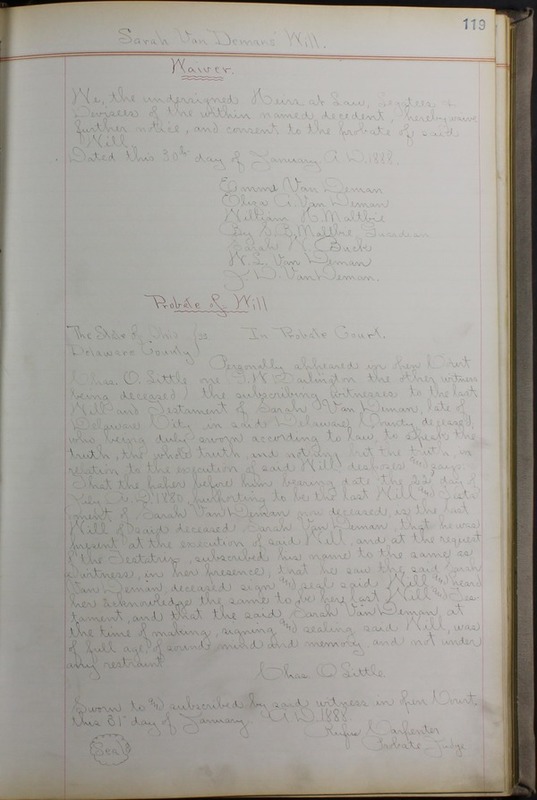 119
Sarah Van Demans' Will.
Waiver.
We, the undersigned Heirs at Law, Legatees &
Devisees of the within named decedent, hereby waive
further notice, and consent to the probate of said
Will.
Dated this 30th day of January A.D. 1888.
Emma Van Deman
Eliza A. Van Deman
William H. Maltbie
By Maltbie, Guardian
Sarah
W. L. Van Deman
J D. Van Deman.
Probate of Will
The State of Ohio ss. In Probate Court.
Delaware County
Personally appeared in open Court
Chas. O. Little one (the other witness
being deceased) the subscribing witnesses to the last
Will and Testament of Sarah Van Deman, late of
Delaware City in said Delaware County deceased,
who, being duly sworn according to law to speak the
truth, the whole truth, and nothing but the truth, in
relation to the execution of said Will deposes and says:
That the paper before him bearing date the 22 day of
A.D. 1880, purporting to be the last Will and Testa
ment of Sarah Van Deman now deceased, is the last
Will of said deceased Sarah Van Deman, that he was
present at the execution of said Will, and at the request
of the Testatrix, subscribed his name to the same as
a witness, in her presence, that he saw the said Sarah
Van Deman deceased sign and seal said Will and heard
her acknowledge the same to be her last Will and Tes-
tament, and that the said Sarah Van Deman, at
the time of making, signing and sealing said Will, was
of full age, of sound mind and memory, and not under
any restraint.
Chas. O Little
Sworn to and subscribed by said witness in open Court,
this 31st day of January A.D. 1888.
Rufus Carpenter
Probate Judge
Seal